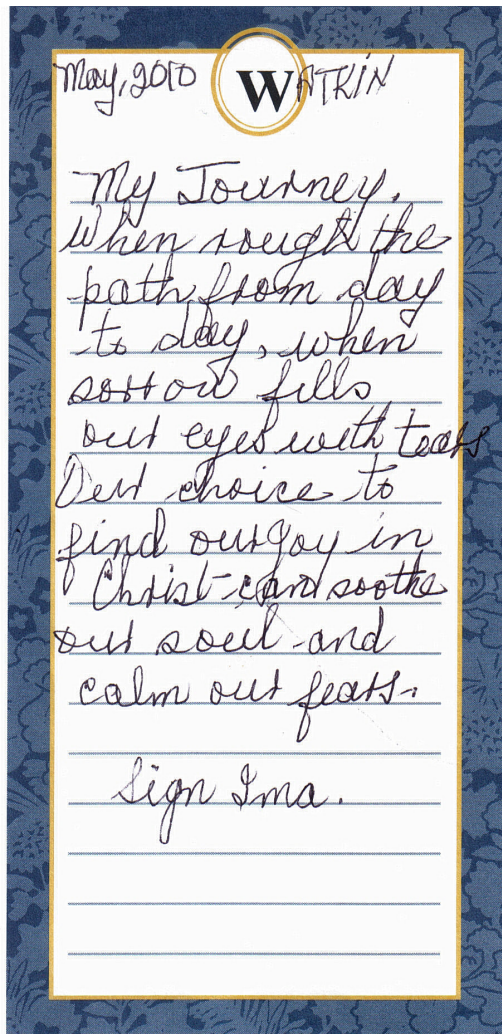 May, 2010 WATKIN
My Journey.
When rough the
path, from day
to day, when
sorrow fills
our eyes with tears
Our choice to
find our joy in
Christ can soothe
our soul and
calm our fears.
Sign Ima.